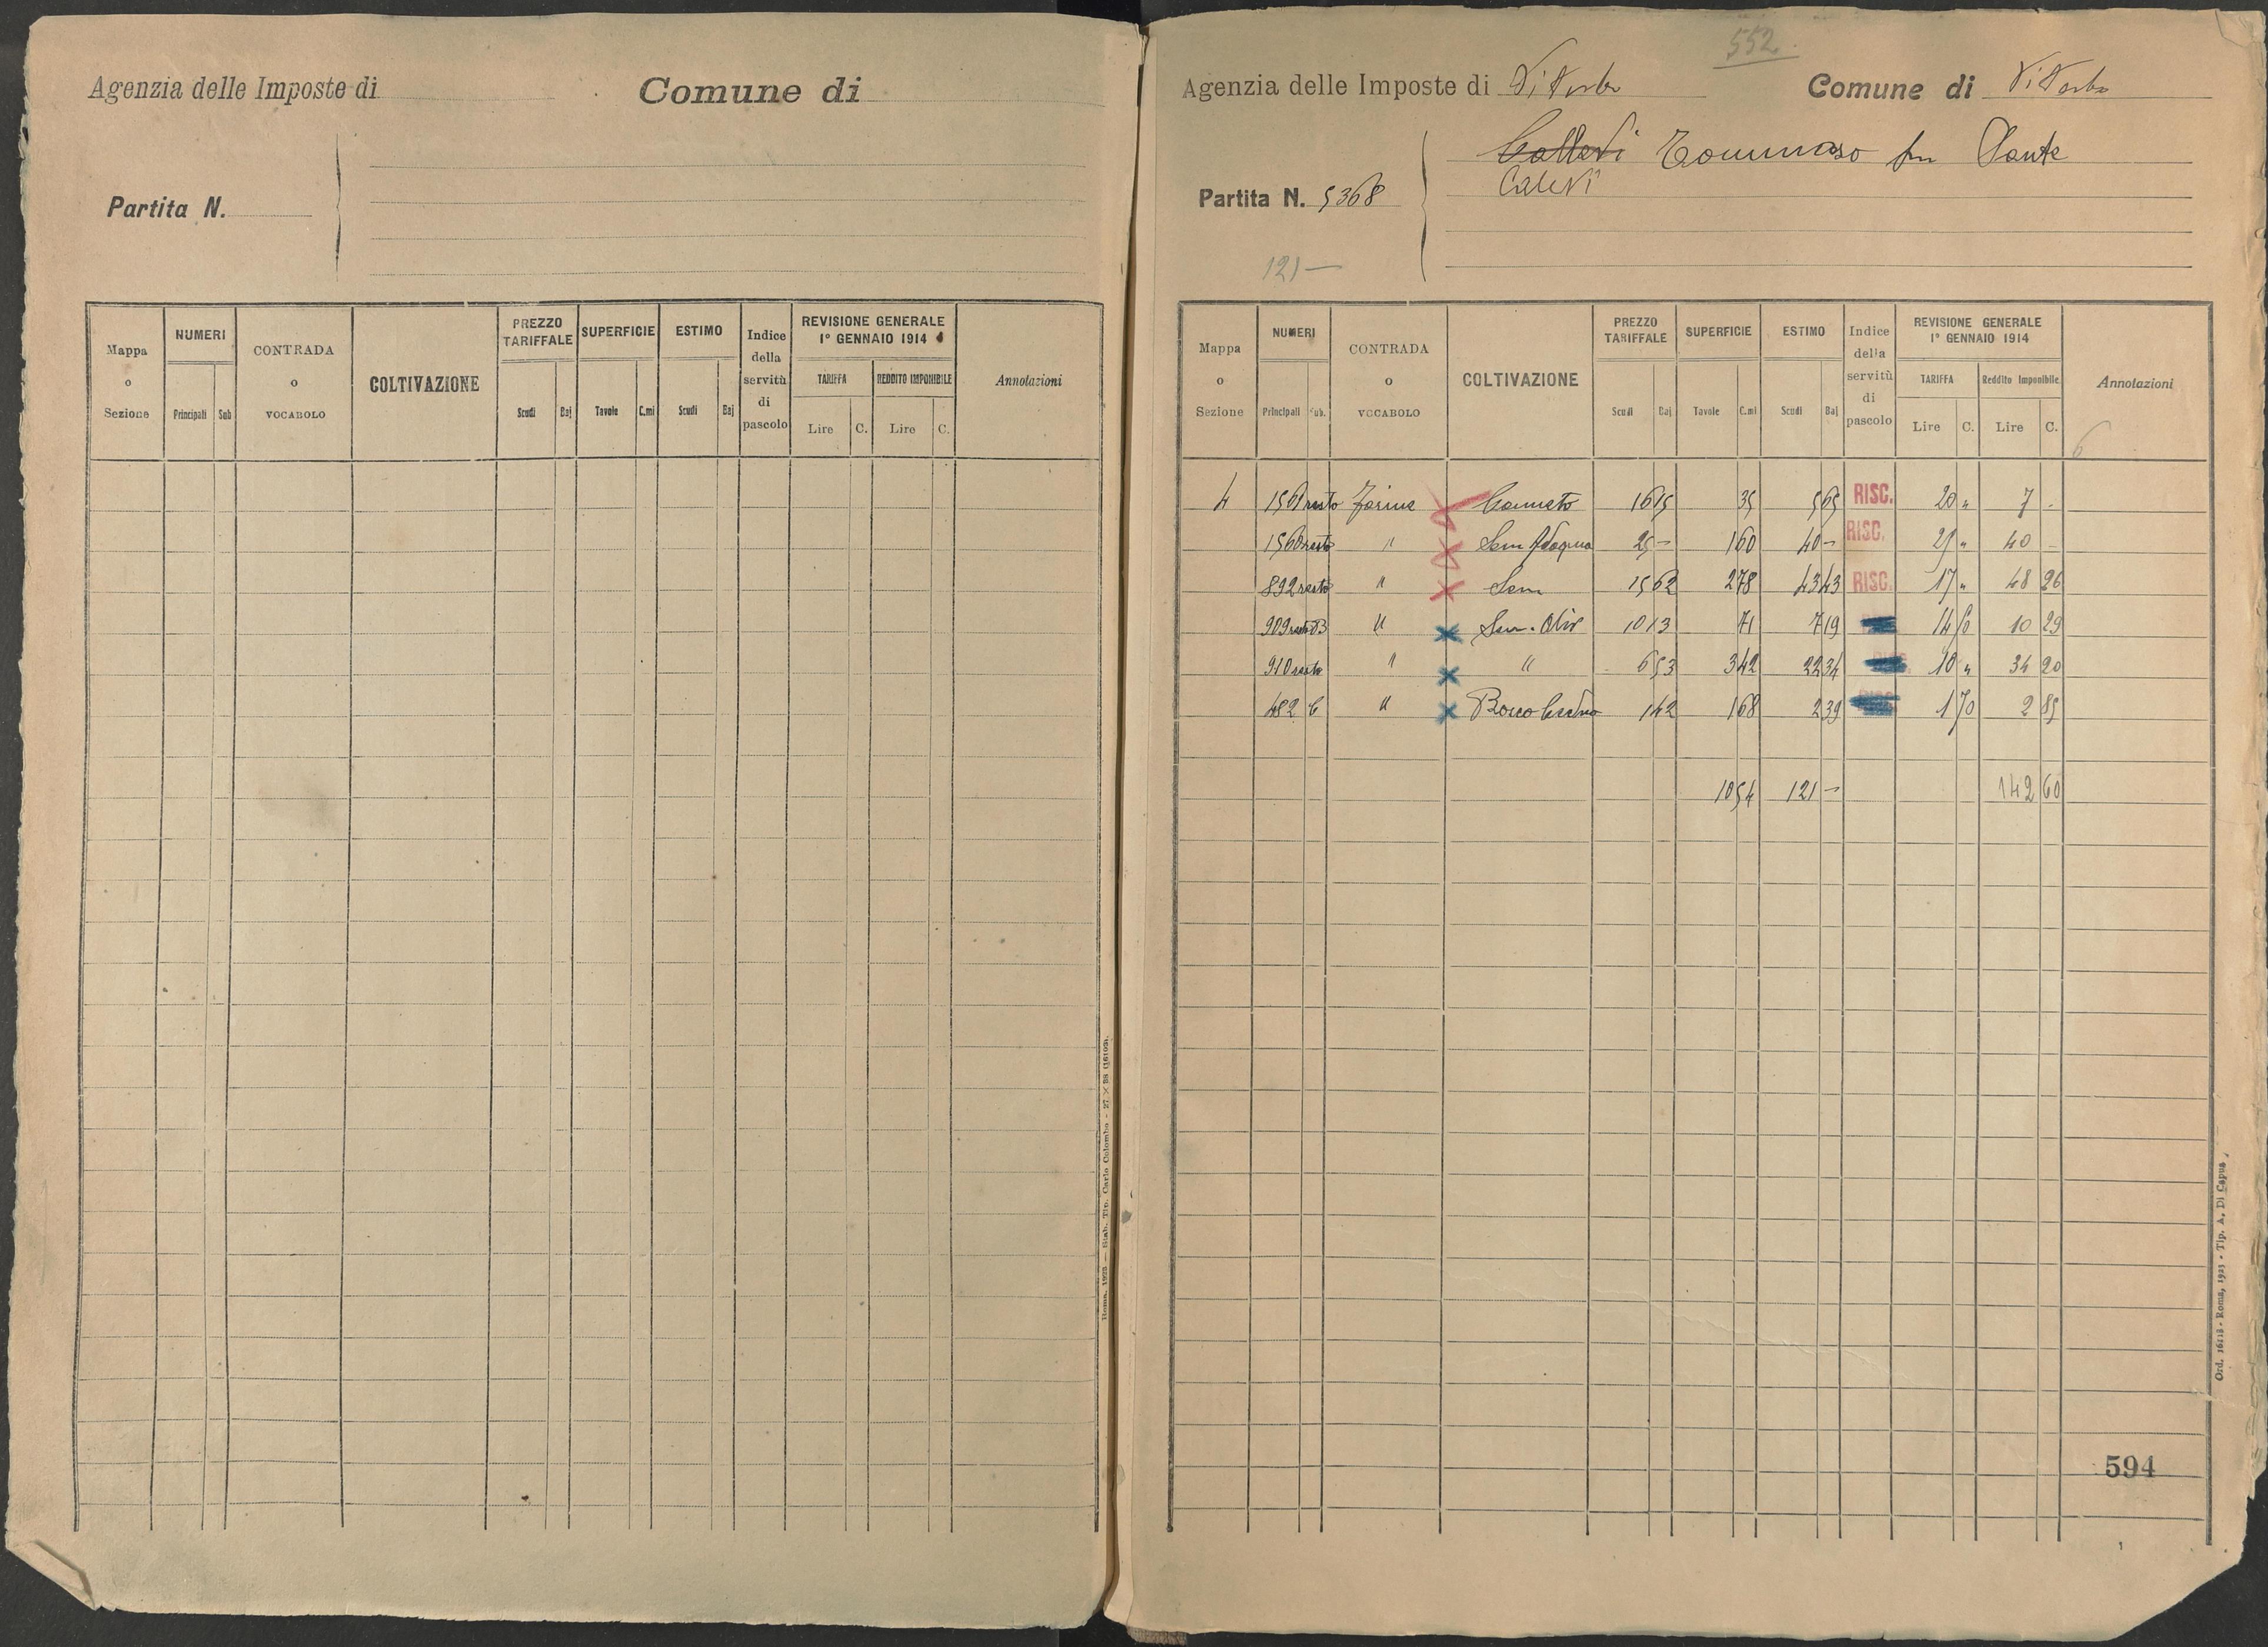 Agenzia delle Imposte di
Comune di
Partita N.
Mappa o Sezione | NUMERI Principali Sub | CONTRADA o VOCABOLO | COLTIVAZIONE | PREZZO TARIFFALE Scudi Baj | SUPERFICIE Tavole C.mi | ESTIMO Scudi Baj | Indice della servitù di pascolo | REVISIONE GENERALE 1° GENNAIO 1914 TARIFFA Lire C. REDDITO IMPONIBILE Lire C. | Annotazioni
Roma, 1923 — Stab. Tip. Carlo Colombo - 27 × 38 (16103)
552
Agenzia delle Imposte di Viterbo
Comune di Viterbo
Callevi Tommaso fu Sante
Calevi
Partita N. 5368
121 —
Mappa o Sezione | NUMERI Principali Sub. | CONTRADA o VOCABOLO | COLTIVAZIONE | PREZZO TARIFFALE Scudi Baj | SUPERFICIE Tavole C.mi | ESTIMO Scudi Baj | Indice della servitù di pascolo | REVISIONE GENERALE 1° GENNAIO 1914 TARIFFA Lire C. Reddito Imponibile Lire C. | Annotazioni
6
4 | 1561 resto | Farine | Canneto | 16 15 | 35 | 5 65 | RISC. | 20 " | 7 -
1560 resto | " | Sem Adaqua | 25 - | 1 60 | 40 - | RISC. | 25 " | 40 -
892 resto | " | Sem | 15 62 | 2 78 | 43 43 | RISC. | 17 " | 48 26
909 resto B | " | Sem. Oliv | 10 13 | 71 | 7 19 | 14 50 | 10 29
910 resto | " | " | 6 53 | 3 42 | 22 34 | 10 " | 34 20
482 C | " | Bosco Ceduo | 1 42 | 1 68 | 2 39 | 1 70 | 2 85
10 54 | 121 - | 142 60
594
Ord. 16113 - Roma, 1923 - Tip. A. Di Capua